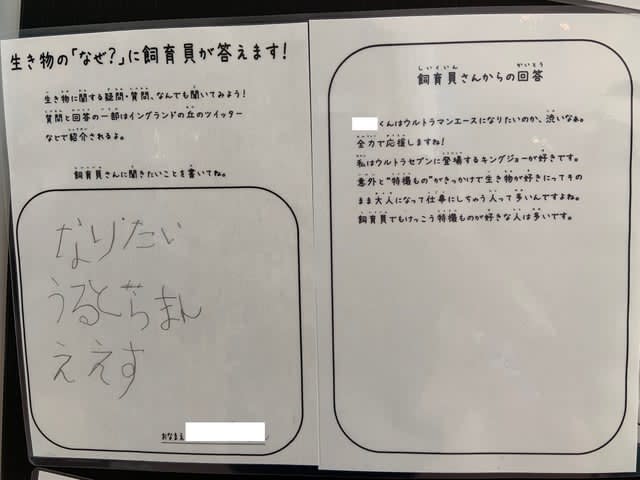 生き物の「なぜ?」に飼育員が答えます!
生き物に関する疑問・質問、なんでも聞いてみよう!
質問と回答の一部はイングランドの丘のツイッター
などで紹介されるよ。
飼育員さんに聞きたいことを書いてね。
なりたい
うるとらまん
ええす
おなまえ
飼育員さんからの回答
くんはウルトラマンエースになりたいのか、渋いなぁ。
全力で応援しますね!
私はウルトラセブンに登場するキングジョーが好きです。
意外と“特撮もの”がきっかけで生き物が好きになってその
まま大人になって仕事にしちゃう人って多いんですよね。
飼育員でもけっこう特撮ものが好きな人は多いです。